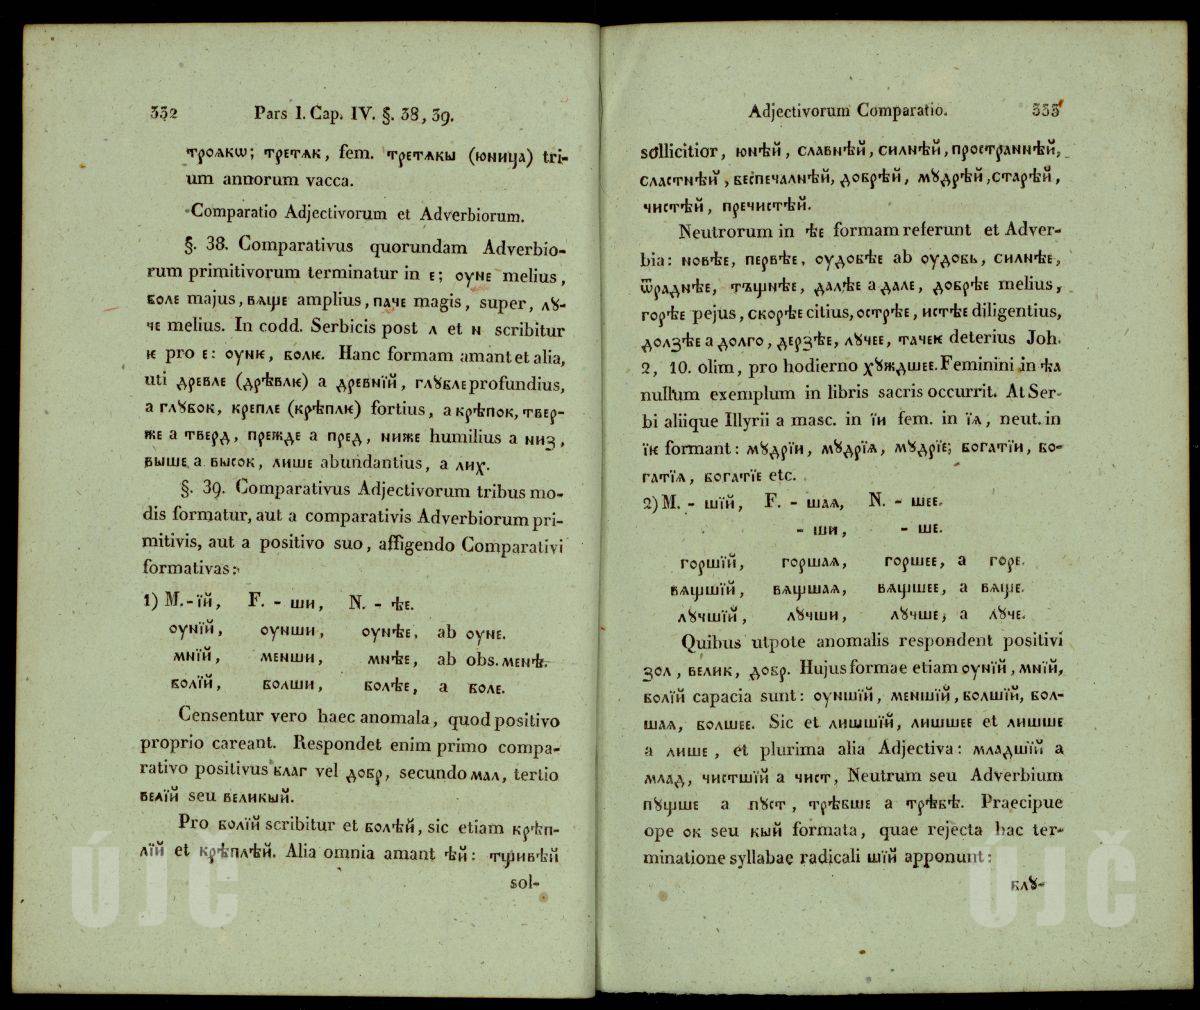 332 Pars I. Cap. IV. §. 38, 39.
трoѧкѡ; третѧк, fem. третѧкы (юница) tri-
um annorum vacca.
Comparatio Adjectivorum et Adverbiorum.
§. 38. Comparativus quorundam Adverbio-
rum primitivorum terminatur in є; оунє melius,
болє majus, вѧщє amplius, пачє magis, super, лꙋ-
чє melius. In codd. Serbicis post л et н scribitur
ѥ pro є: оунѥ, болѥ. Hanc formam amant et alia,
uti дрєвлє (дрѣвлѥ) а дрєвнїй, глꙋблє profundius,
а глꙋбок, крєплє (крѣплѥ) fortius, а крѣпок, твєр-
жє а твєрд, прєждє а прєд, нижє humilius а низ,
вышє а высок, лишє abundantius, а лих.
§. 39. Comparativus Adjectivorum tribus mo-
dis formatur, aut a comparativis Adverbiorum pri-
mitivis, aut a positivo suo, affigendo Comparativi
formativas:
1) M. - їй, F. - ши, N. - ѣє.
оунїй, оунши, оунѣє, ab оунє.
мнїй, мєнши, мнѣє, ab obs. мєнѣ.
болїй, болши, болѣє, a болє.
Censentur vero haec anomala, quod positivo
proprio careant. Respondet enim primo compa-
rativo positivus благ vel добр, secundo мал, tertio
вєлїй seu вєликый.
Pro болїй scribitur et болѣй, sic etiam крѣп-
лїй et крѣплѣй. Alia omnia amant ѣй: тщивѣй
sol-
Adjectivorum Comparatio. 333
sollicitior, юнѣй, славнѣй, силнѣй, пространнѣй,
сластнѣй, бєспєчалнѣй, добрѣй, мꙋдрѣй, старѣй,
чистѣй, прєчистѣй.
Neutrorum in ѣє formam referunt et Adver-
bia: новѣє, пєрвѣє, оудобѣє ab оудобь, силнѣє,
ѿраднѣє, тъщнѣє, далѣє а далє, добрѣє melius,
горѣє pejus, скорѣє citius, острѣє, истѣє diligentius,
долзѣє а долго, дєрзѣє, лꙋчєє, тачєѥ deterius Joh.
2, 10. olim, pro hodierno хꙋждшєє. Feminini in ѣа
nullum exemplum in libris sacris occurrit. At Ser-
bi aliique Illyrii a masc. in їи fem. in їѧ, neut. in
їѥ formant: мꙋдрїи, мꙋдрїѧ, мꙋдрїє; богатїи, бо-
гатїѧ, богатїє etc.
2) M. - шїй, F. - шаѧ, N. - шєє.
- ши, - шє.
горшїй, горшаѧ, горшєє, а горє.
вѧщшїй, вѧщшаѧ, вѧщшєє, а вѧщє.
лꙋчшїй, лꙋчши, лꙋчшє, а лꙋчє.
Quibus utpote anomalis respondent positivi
зол, вєлик, добр. Hujus formae etiam оунїй, мнїй,
болїй capacia sunt: оуншїй, мєншїй, болшїй, бол-
шаѧ, болшєє. Sic et лишшїй, лишшєє et лишшє
а лишє, et plurima alia Adjectiva: младшїй а
млад, чистшїй а чист, Neutrum seu Adverbium
пꙋщшє а пꙋст, трѣбшє а трѣбѣ. Praecipue
ope ок seu кый formata, quae rejecta hac ter-
minatione syllabae radicali шїй apponunt:
блꙋ-
ÚJČ ÚJČ